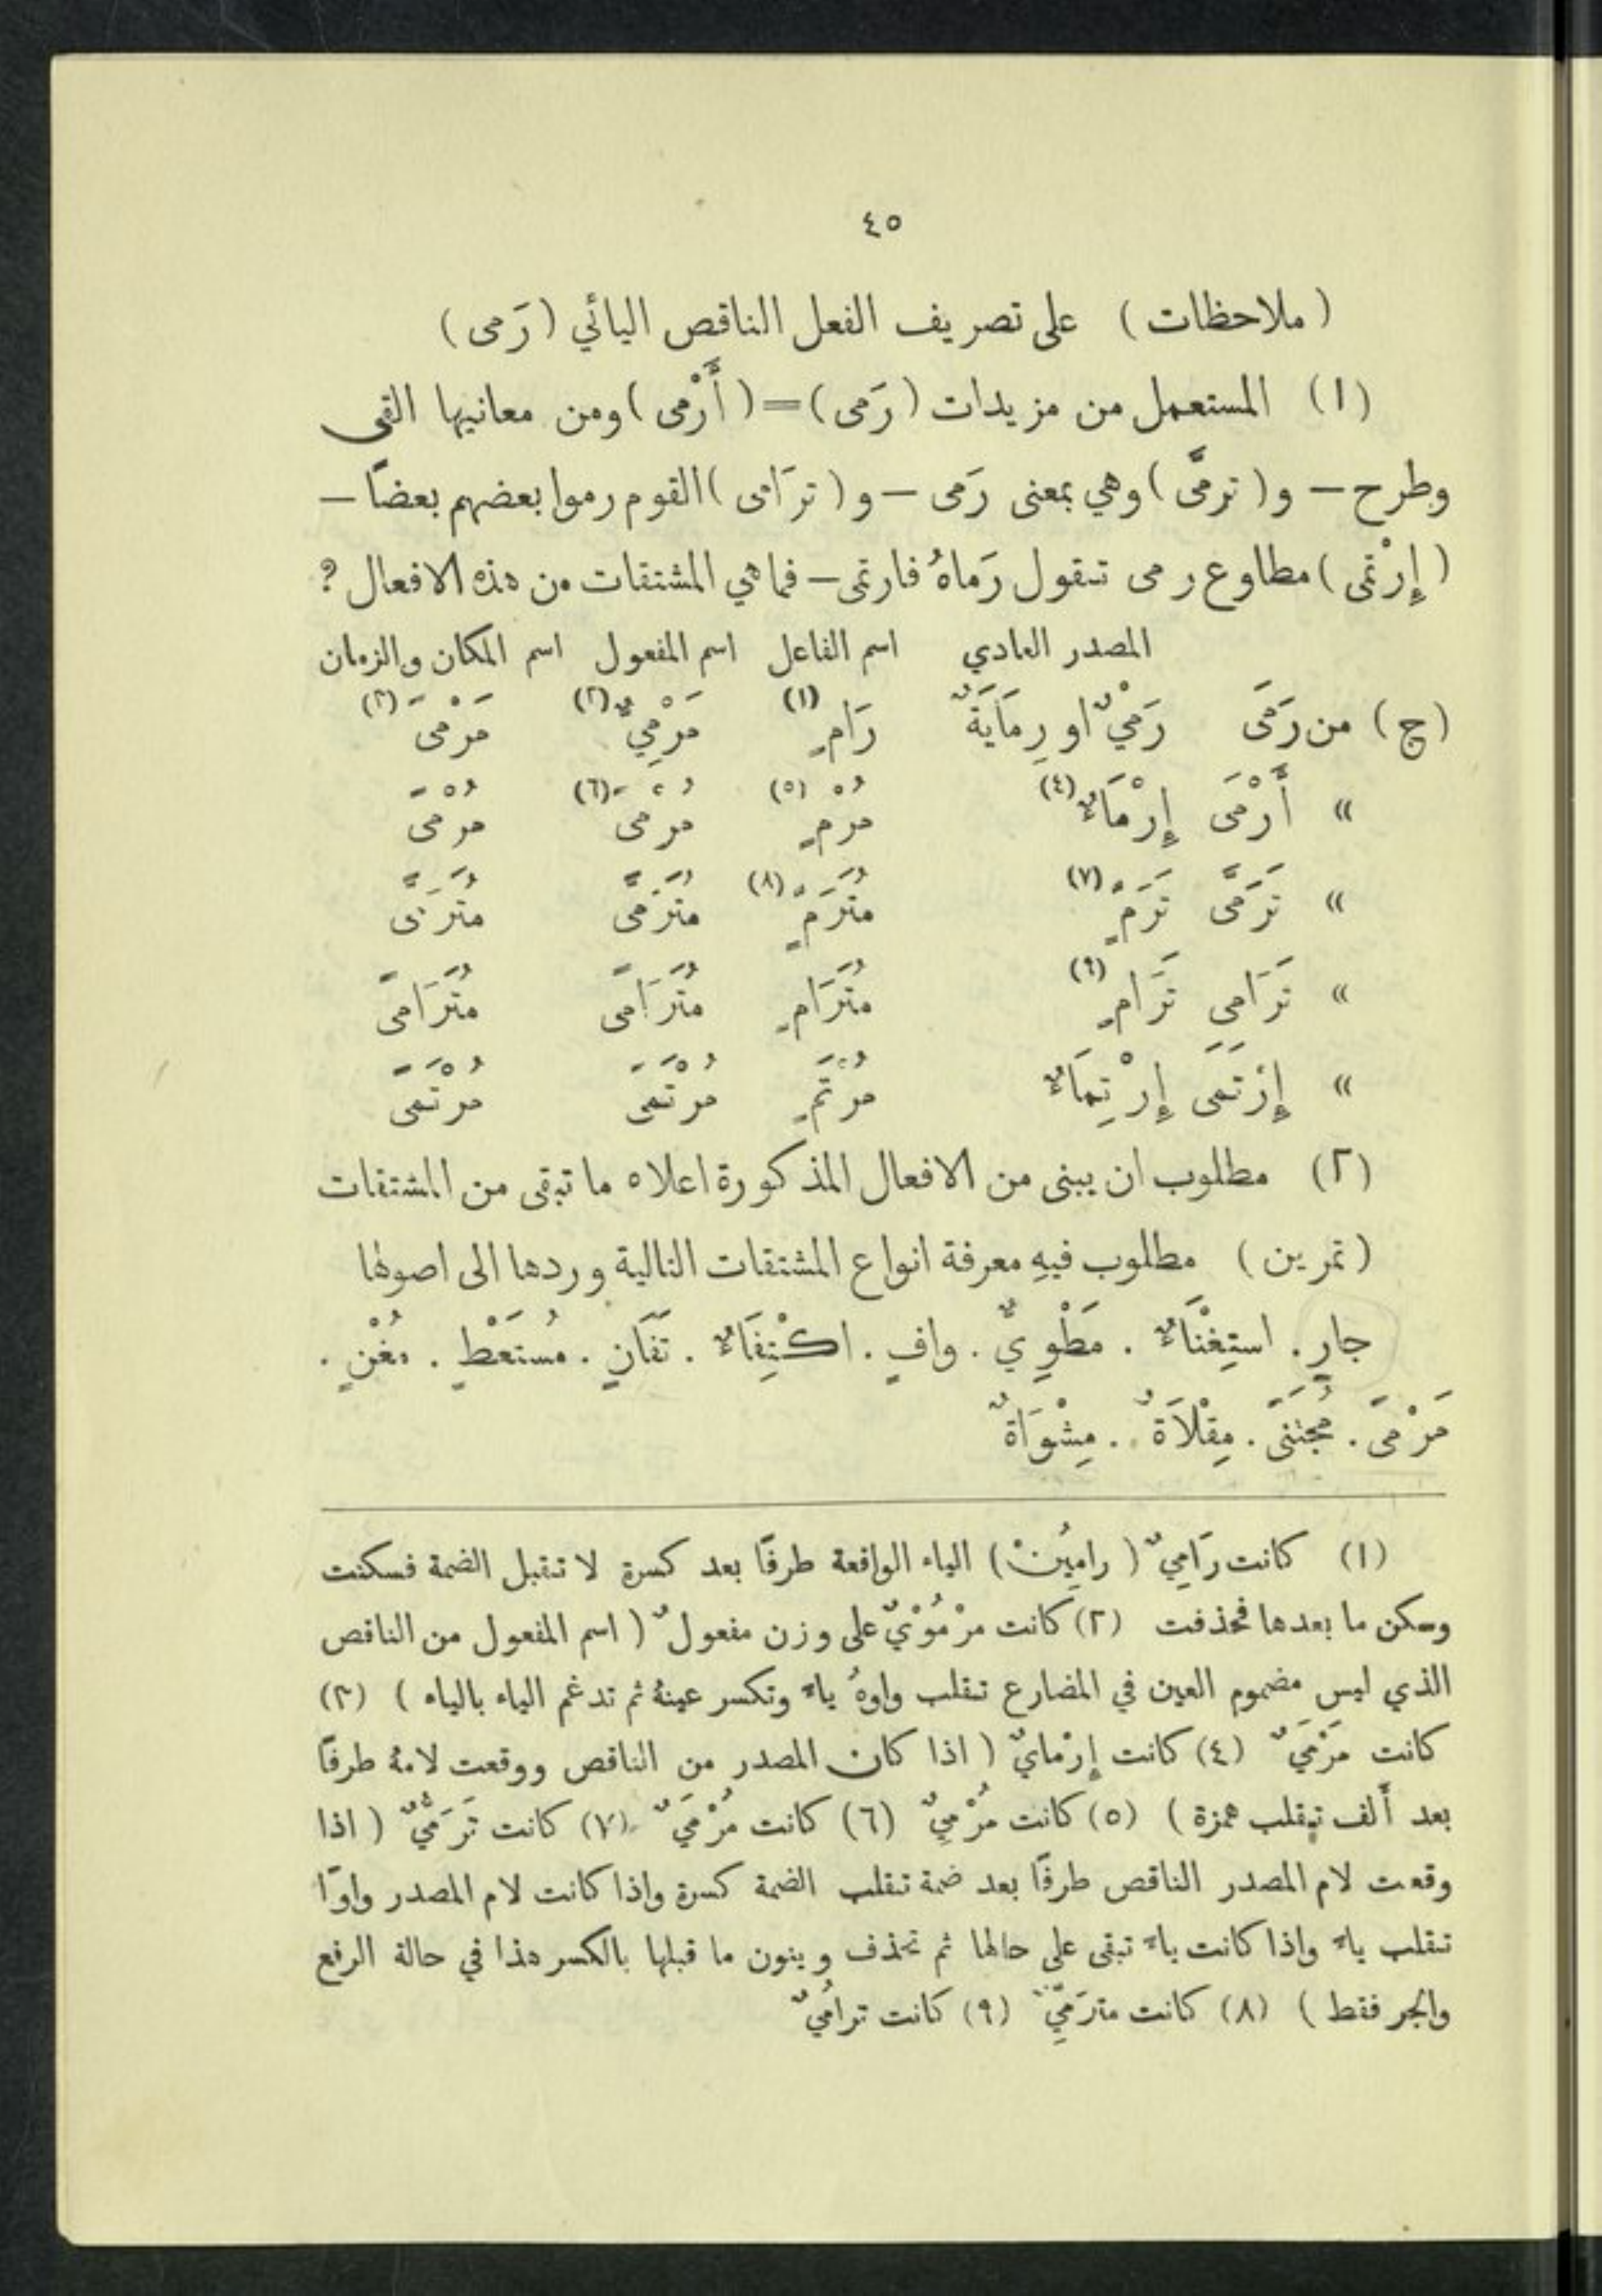 ٤٥
( ملاحظات ) على تصريف الفعل الناقص اليائي ( رَمى )
(١) المستعمل من مزيدات ( رَمى ) = ( أَرْمى ) ومن معانيها القى
وطرح — و ( ترمَّى ) وهي بمعنى رَمى — و ( ترَامى ) القوم رموا بعضهم بعضاً —
( إِرْتمى ) مطاوع رمى تقول رَماهُ فارتمى — فما هي المشتقات من هذه الافعال ؟
المصدر العادي اسم الفاعل اسم المفعول اسم المكان والزمان
(ج) من رَمَى رَمْيٌ او رِمَايَةٌ رَامٍ (١) مَرْمِيٌّ (٢) مَرْمىً (٣)
» أَرْمَى إِرْمَاءٌ (٤) مُرْمٍ (٥) مُرْمىً (٦) مُرْمىً
» تَرَمَّى تَرَمٍّ (٧) مُتَرَمٍّ (٨) مُتَرَمَّى مُتَرَمَّى
» تَرَامى تَرَامٍ (٩) مُتَرَامٍ مُتَرَامىً مُتَرَامىً
» إِرْتَمَى إِرْتِمَاءٌ مُرْتَمٍ مُرْتَمىً مُرْتَمىً
(٢) مطلوب ان يبنى من الافعال المذكورة اعلاه ما تبقى من المشتقات
( تمرين ) مطلوب فيهِ معرفة انواع المشتقات التالية وردها الى اصولها
جارٍ . استِغْنَاءٌ . مَطْوِيٌّ . وافٍ . اكْتِفَاءٌ . تَفَانٍ . مُستَعْطٍ . مُغْنٍ .
مَرْمىً . مُجْتَنىً . مِقْلَاةٌ . مِشْوَاةٌ
(١) كانت رَامِيٌ ( رامِيُنْ ) الياء الواقعة طرفًا بعد كسرة لا تقبل الضمة فسكنت
وسكن ما بعدها فحذفت (٢) كانت مرْمُوْيٌ على وزن مفعولٌ ( اسم المفعول من الناقص
الذي ليس مضموم العين في المضارع تقلب واوهُ ياءً وتكسر عينهُ ثم تدغم الياء بالياء ) (٣)
كانت مَرْمَيٌ (٤) كانت إِرْمايٌ ( اذا كان المصدر من الناقص ووقعت لامهُ طرفًا
بعد أَلف تقلب همزة ) (٥) كانت مُرْمِيٌ (٦) كانت مُرْمَيٌ (٧) كانت تَرَمُّيٌ ( اذا
وقعت لام المصدر الناقص طرفًا بعد ضمة تقلب الضمة كسرة واذا كانت لام المصدر واوًا
تقلب ياءً واذا كانت ياءً تبقى على حالها ثم تحذف وينون ما قبلها بالكسر هذا في حالة الرفع
والجر فقط ) (٨) كانت مترَمِّيٌ (٩) كانت ترامُيٌ